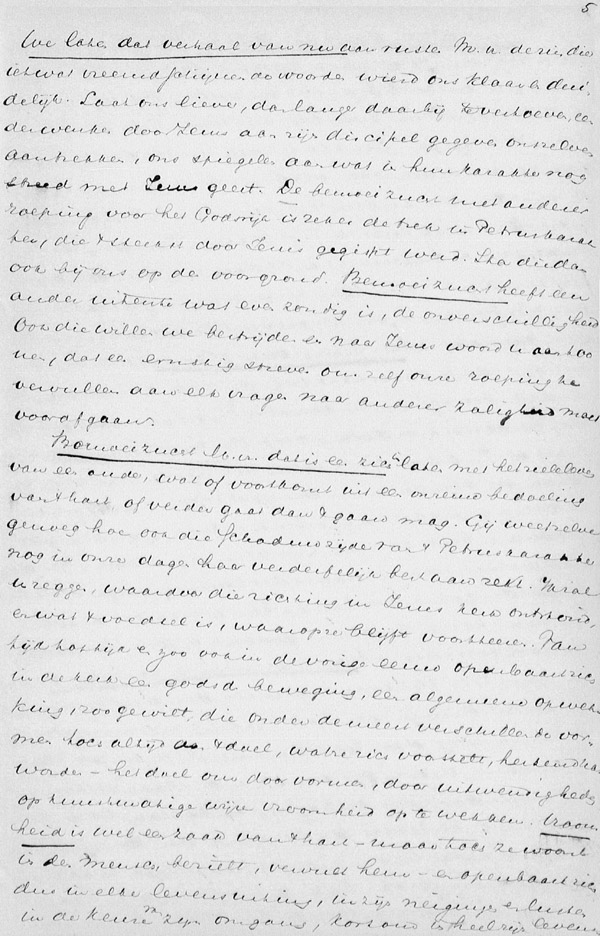 5
We laten dat verhaal van nu aan rusten M. u. de zin, die
ietwat vreemd woorden werd ons klaar en dui
delijk. Laat ons liever, dan lang daarbij te vertoeven, een
der wenken door Jezus aan zijn discipel gegeven onszelven
aantrekken, ons spiegelen aan wat in hun karakter nog
streed met Jezus geest. De bemoeizucht met anderer
roeping voor het Godsrijk is zeker de trek in Petrus karak
ter, die 't sterkst door Jezus gegispt werd. Sta die dan
ook bij ons op de voorgrond. Bemoeizucht heeft een
ander uiterste wat even zondig is, de onverschilligheid
Ook die willen we bestrijden en naar Jezus woord u aantoo
nen, dat een ernstig streven om zelf onze roeping te
vervullen aan elk vragen naar anderer zaligheid moet
voorafgaan.
Bemoeizucht M. u. dat is een zich laten met het zieleleven
van een ander, wat of voortkomt uit een onreine bedoeling
van 't hart, of verder gaat dan 't gaan mag. Gij weet zelve
genoeg hoe ook die schaduwzijde van 't Petruskarakter
nog in onze dagen haar verderfelijk bestaan rekt.
u zeggen, waardoor die richting in Jezus kerk ontstond,
en wat 't voedsel is, waarop ze blijft voortteren. Van
tijd tot tijd en zoo ook in de vorige eeuw openbaart zich
in de kerk een godsd beweging, een algemeene opwek
king, zoo ge wilt, die onder de meest verschillende vor-
men toch altijd als 't doel, wat ze zich voorstelt,
worden – het doel om door vormen, door uitwendigheden
op kunstmatige wijze vroomheid op te wekken. Vroom
heid is wel een zaad van 't hart – maar toch ze woont
in den mensch, bezielt, vervult hem – en openbaart zich
dus in elke levensuiting, in zijn neigingen en lusten
in de keuze zijn omgang, kortom in heel zijn leven